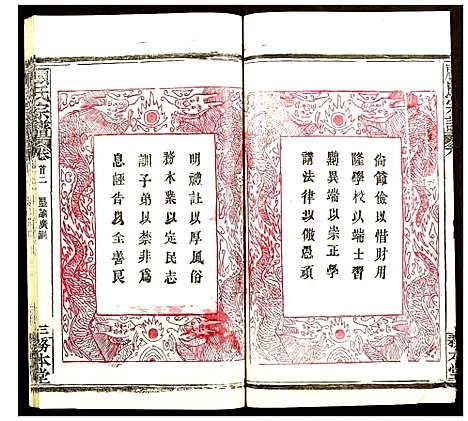 尙節儉以惜財用
隆學校以端士習
黜異端以崇正學
講法律以儆愚頑
明禮讓以厚風俗
務本業以定民志
訓子弟以禁非爲
息誣告以全善良
氏宗譜卷
首二
聖諭廣訓
三
務本堂